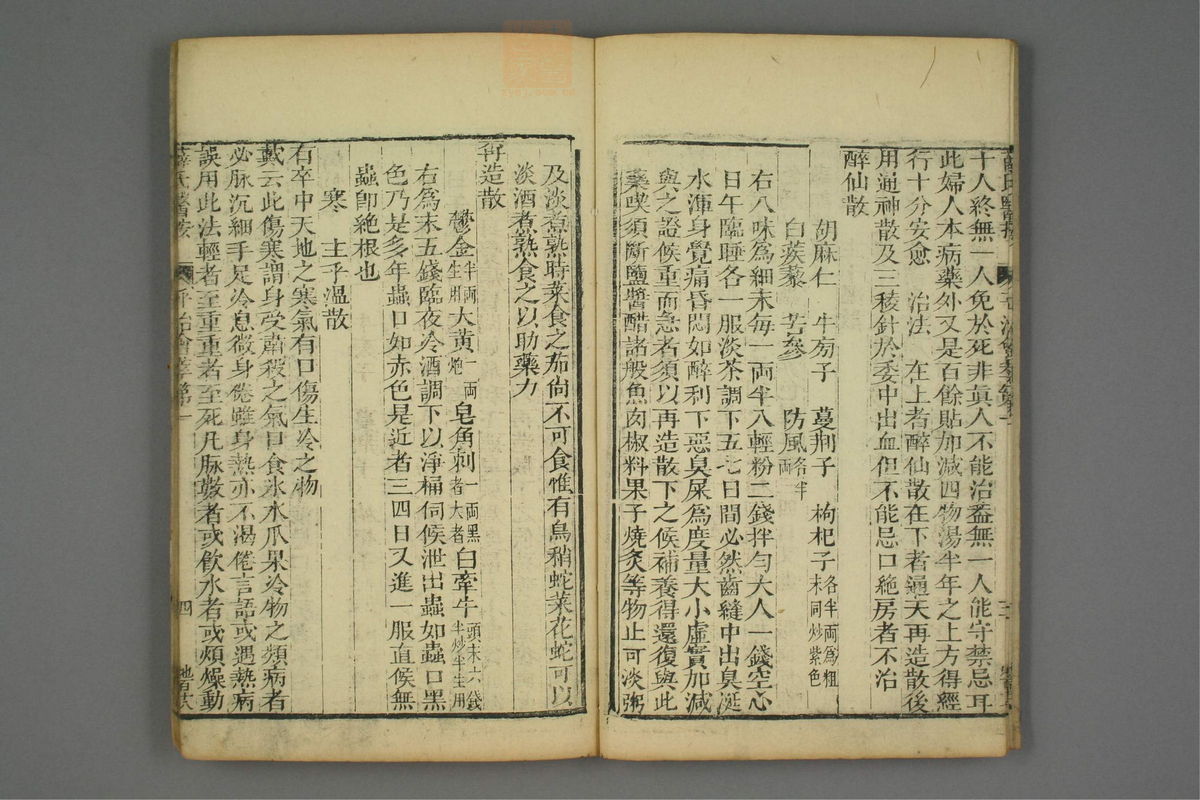 十人終無一人免於死非真人不能治蓋無一人能守禁忌耳
此婦人本病藥外又是百餘貼加減四物湯半年之上方得經
行十分安愈　治法　在上者醉仙散在下者通天再造散後
用通神散及三稜針於委中出血但不能忌口絕房者不治
醉仙散
胡麻仁　牛蒡子　蔓荆子　枸杞子各半両為粗末同炒紫色
白蒺藜　苦參　防風各半両
右八味爲細末每一両半入輕粉二錢拌勻大人一錢空心
日午臨睡各一服淡茶調下五七日間必然齒縫中出臭涎
水渾身覺痛昏悶如醉利下惡臭屎爲度量大小虛實加減
與之證候重而急者須以再造散下之候補養得還復與此
藥喫須斷鹽醬醋諸般魚肉椒料果子燒炙等物止可淡粥
及淡煮熟時菜食之茄尙不可食惟有烏稍蛇菜花蛇可以
淡酒煮熟食之以助藥力
再造散
鬱金半両生用大黃炮一両皂角刺一両黑者大者白牽牛頭末六錢半炒半生用
右爲末五錢臨夜冷酒調下以淨桶伺候泄出蟲如蟲口黑
色乃是多年蟲口如赤色是近者三四日又進一服直候無
蟲卽絕根也
寒　主乎溫散
右卒中天地之寒氣有口傷生冷之物
戴云此傷寒謂身受肅殺之氣口食氷水瓜果冷物之類病者
必脉沉細手足冷息微身倦雖身熱亦不渴倦言語或遇熱病
誤用此法輕者至重重者至死凡脉數者或飲水者或煩燥動
薛氏醫按　平治會萃第一　四